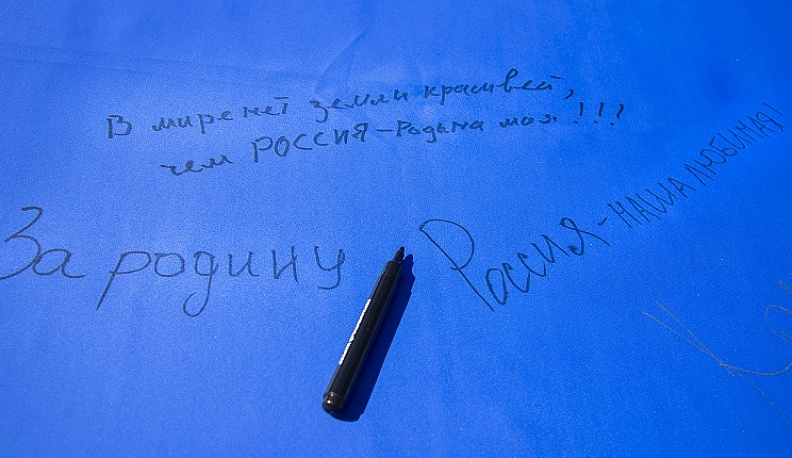 В мире нет земли красивей,
чем РОССИЯ - Родина моя!!!
За родину
Россия - НАША ЛЮБИМАЯ!